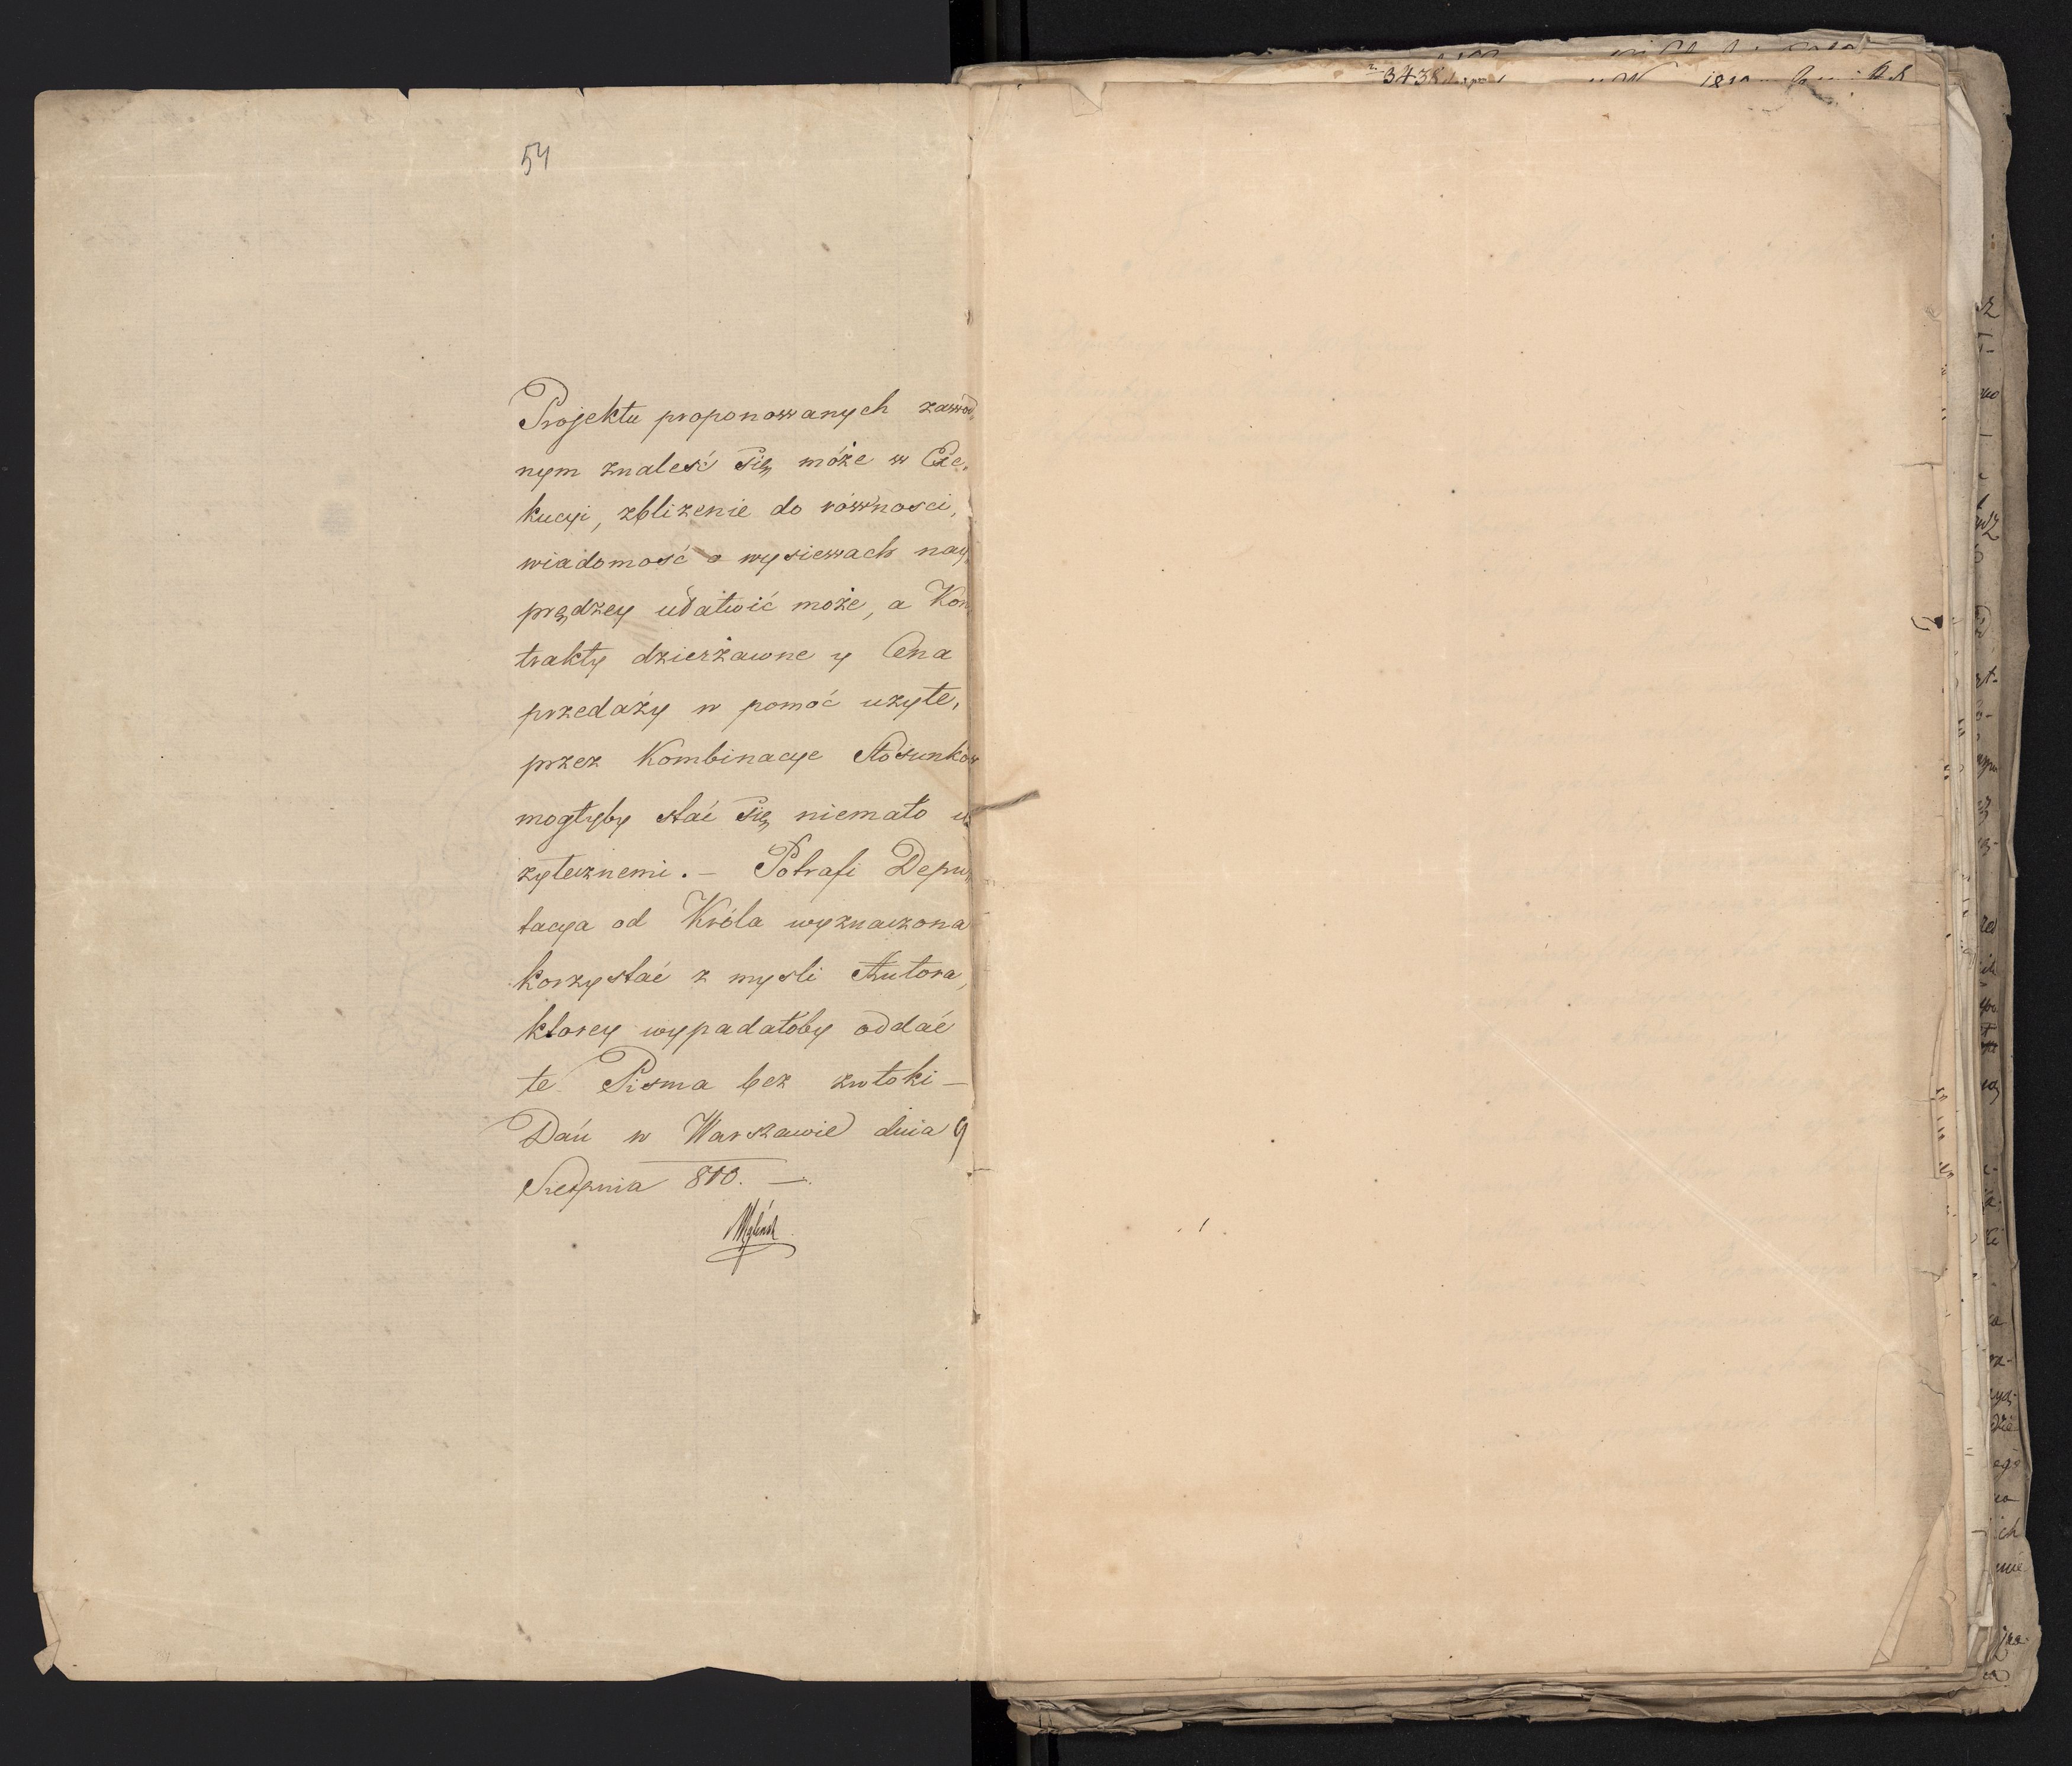 54
Projektu proponowanych zawod„
nym znaleść się może w Exe„
kucyi, zbliżenie do równosci,
wiadomość o wysiewach nay„
prędzey ułatwić może, a Kon„
trakty dzierżawne y Cena
przedaży w pomoć użyte,
przez Kombinacye Stosunków
mogłyby stać się niemało u„
żytecznemi. – Potrafi Depu„
tacya od Króla wyznaczona
korzystać z mysli Autora,
ktorey wypadałoby oddać
te Pisma bez zwłoki –
Dań w Warszawie dnia 9
Sierpnia 810. –
3438